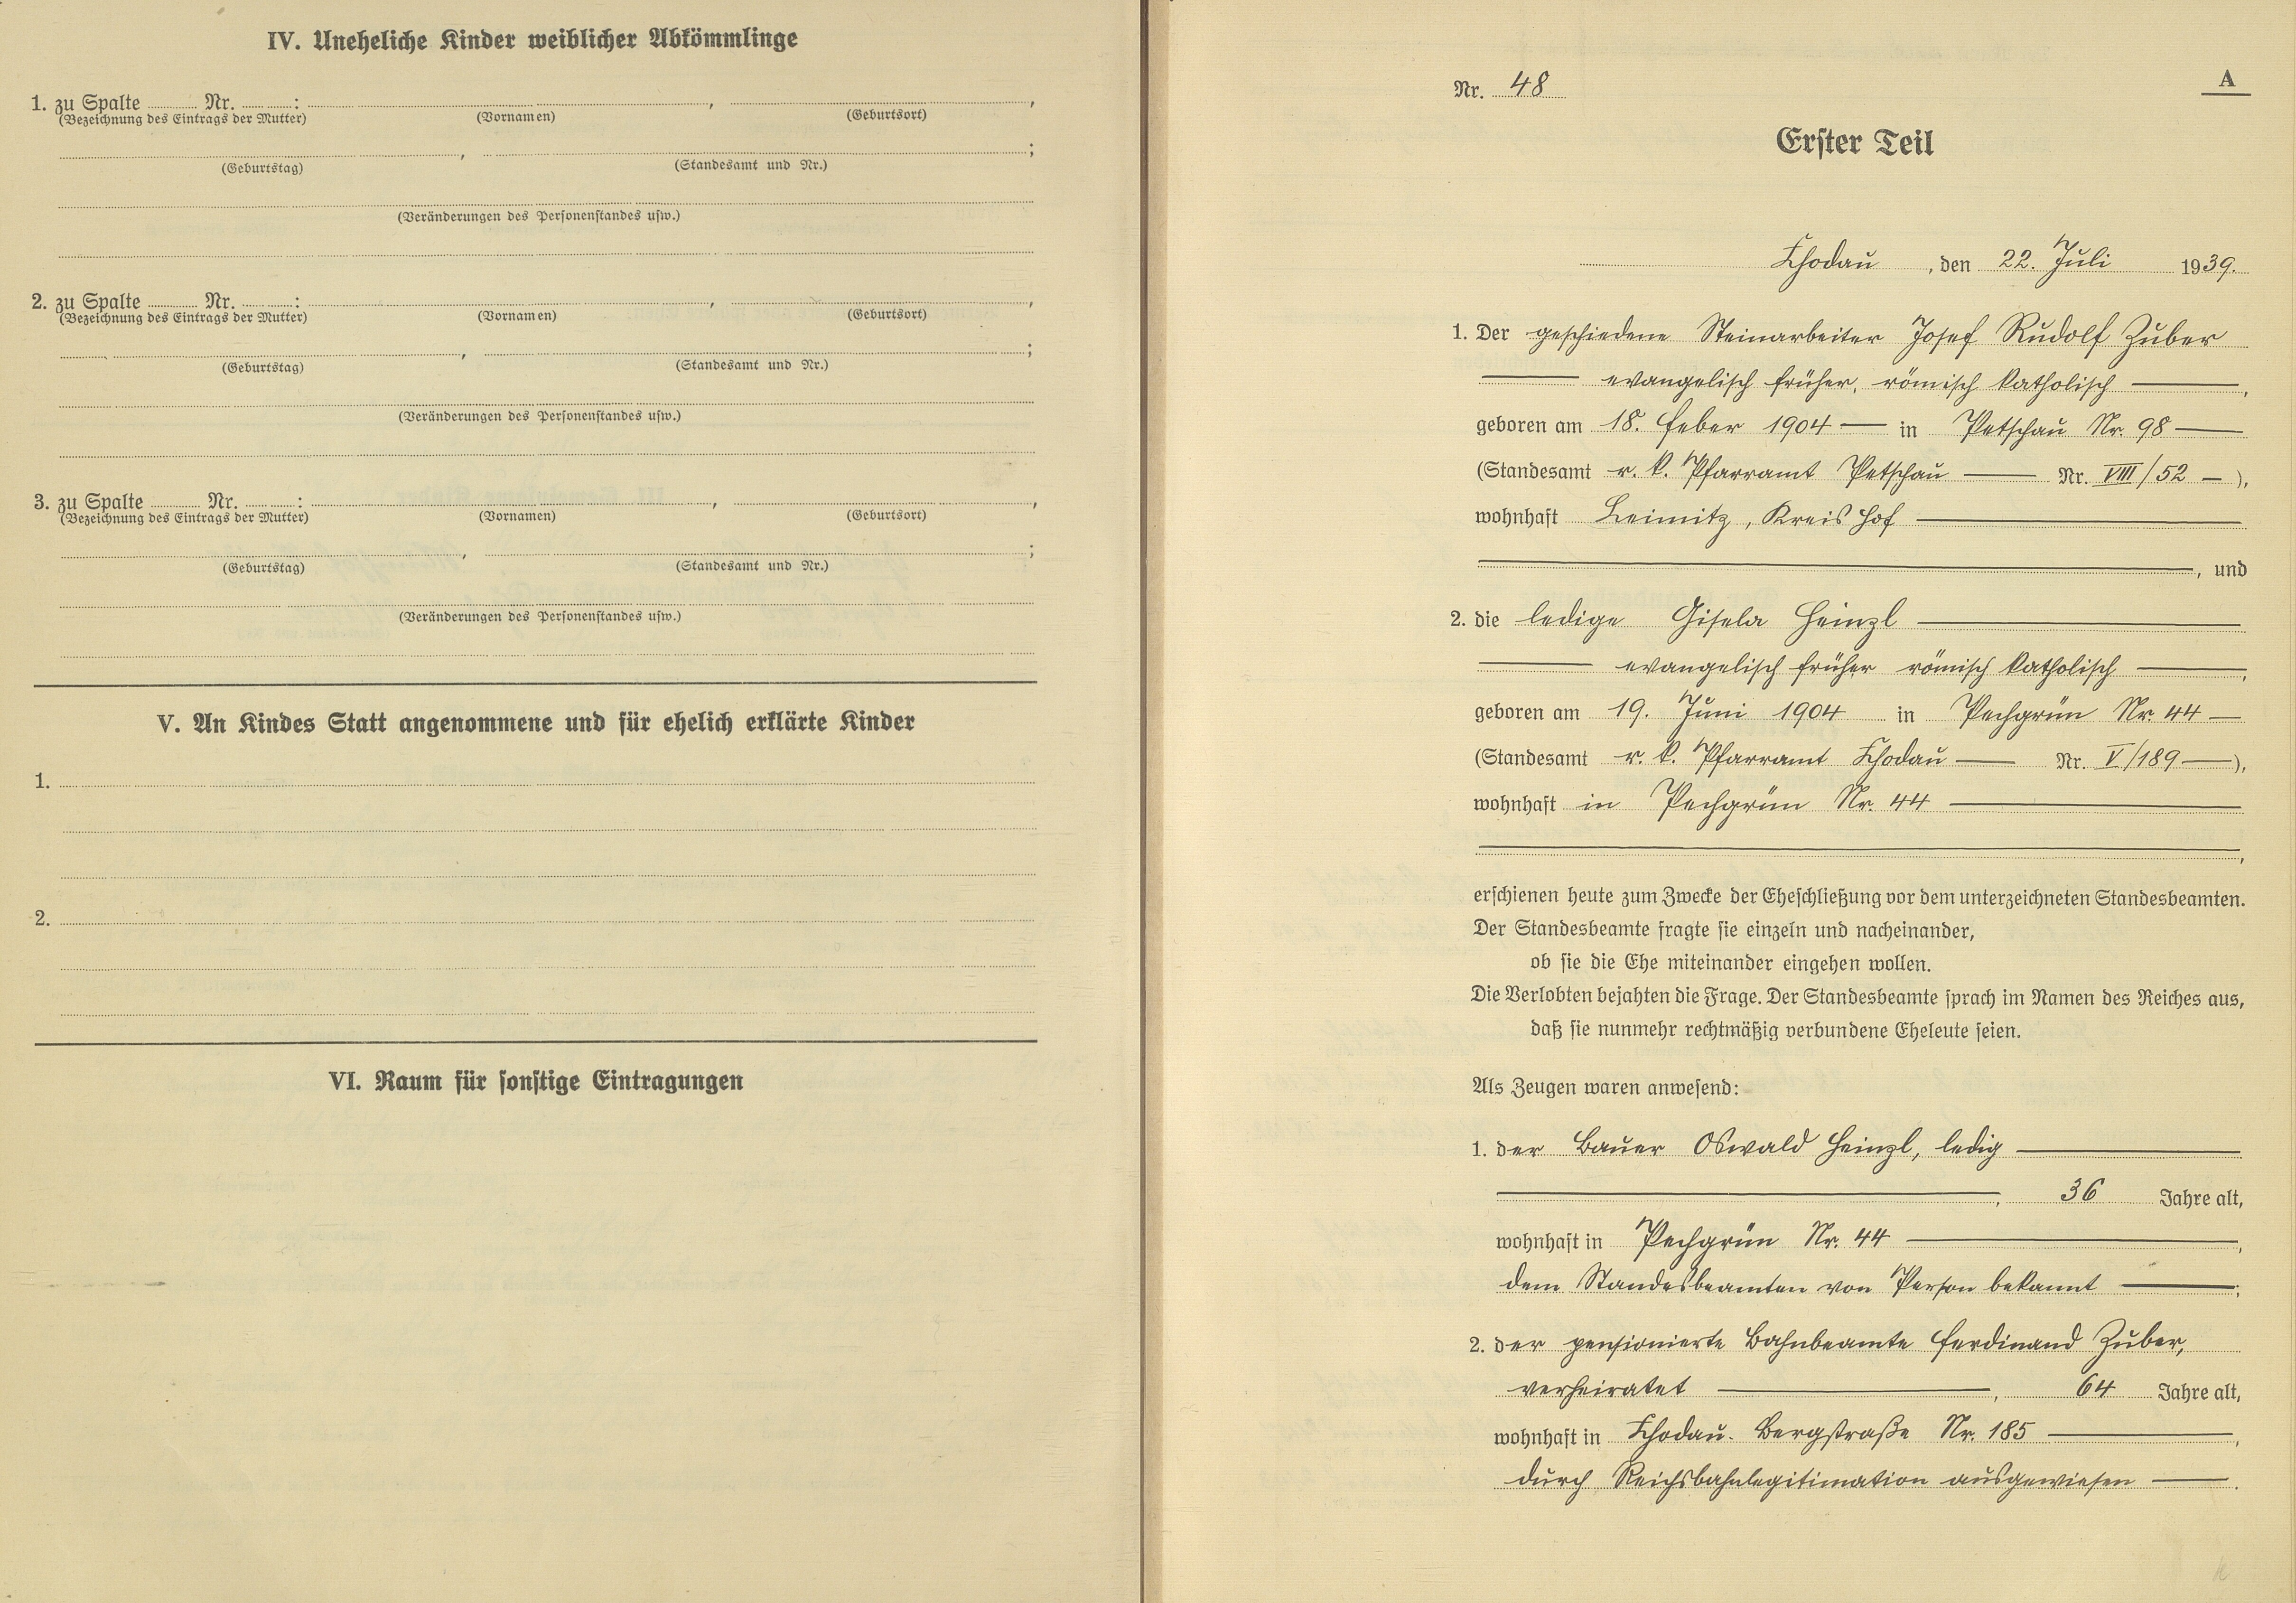 IV. Uneheliche Kinder weiblicher Abkömmlinge
1. zu Spalte Nr. : , ,
(Bezeichnung des Eintrags der Mutter) (Vornamen) (Geburtsort)
, ;
(Geburtstag) (Standesamt und Nr.)
(Veränderungen des Personenstandes usw.)
2. zu Spalte Nr. : , ,
(Bezeichnung des Eintrags der Mutter) (Vornamen) (Geburtsort)
, ;
(Geburtstag) (Standesamt und Nr.)
(Veränderungen des Personenstandes usw.)
3. zu Spalte Nr. : , ,
(Bezeichnung des Eintrags der Mutter) (Vornamen) (Geburtsort)
, ;
(Geburtstag) (Standesamt und Nr.)
(Veränderungen des Personenstandes usw.)
V. An Kindes Statt angenommene und für ehelich erklärte Kinder
1.
2.
VI. Raum für sonstige Eintragungen
A
Nr. 48
Erster Teil
Chodau, den 22. Juli 1939.
1. Der geschiedene Steinarbeiter Josef Rudolf Zuber
— evangelisch früher, römisch katholisch —,
geboren am 18. Feber 1904 — in Petschau Nr. 98 —
(Standesamt r. k. Pfarramt Petschau — Nr. VIII/52 —),
wohnhaft Leimitz, Kreis Hof —
—, und
2. die ledige Gisela Heinzl —
— evangelisch früher römisch katholisch —,
geboren am 19. Juni 1904 in Pechgrün Nr. 44 —
(Standesamt r. k. Pfarramt Chodau — Nr. V/189 —),
wohnhaft in Pechgrün Nr. 44 —
—,
erschienen heute zum Zwecke der Eheschließung vor dem unterzeichneten Standesbeamten.
Der Standesbeamte fragte sie einzeln und nacheinander,
ob sie die Ehe miteinander eingehen wollen.
Die Verlobten bejahten die Frage. Der Standesbeamte sprach im Namen des Reiches aus,
daß sie nunmehr rechtmäßig verbundene Eheleute seien.
Als Zeugen waren anwesend:
1. der Bauer Oswald Heinzl, ledig —
—, 36 Jahre alt,
wohnhaft in Pechgrün Nr. 44 —,
dem Standesbeamten von Person bekannt —;
2. der pensionierte Bahnbeamte Ferdinand Zuber,
verheiratet —, 64 Jahre alt,
wohnhaft in Chodau. Bergstraße Nr. 185 —,
durch Reichsbahnlegitimation ausgewiesen —.